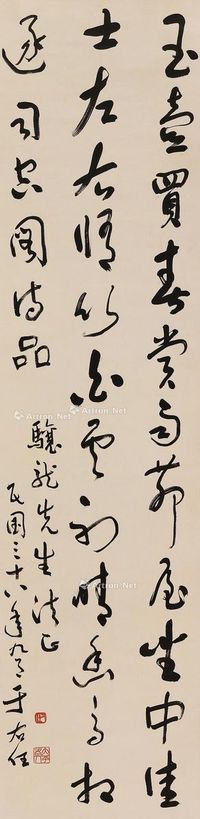 玉壺買春賞雨茆屋坐中佳
士左右脩竹白雲初晴幽鳥相
逐 司空圖詩品
驪龍先生法正
民國三十八年九月 于右任
Artron.Net
Artron.Net
Artron.Net
Artron.Net